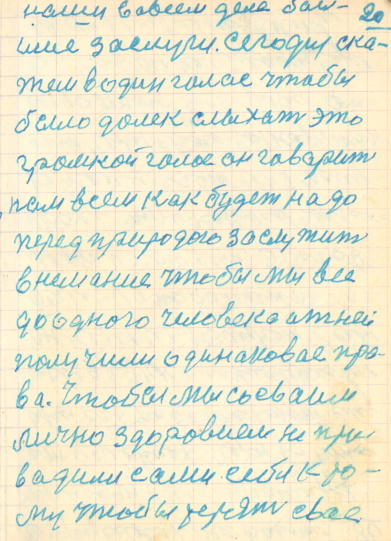 20
нами вовсем дела боль-
шие заслуги. Сегодня ска-
жем водин голос чтобы
было долек слыхат это
громкой голос он говарит
нам всем как будет надо
перед природою заслужит
внемание чтобы мы все
до одного человека от ней
получили одинаковае пра-
ва. Чтобы мы своеваим
лично здоровием не при
вадили сами себя к то-
му чтобы терят свае